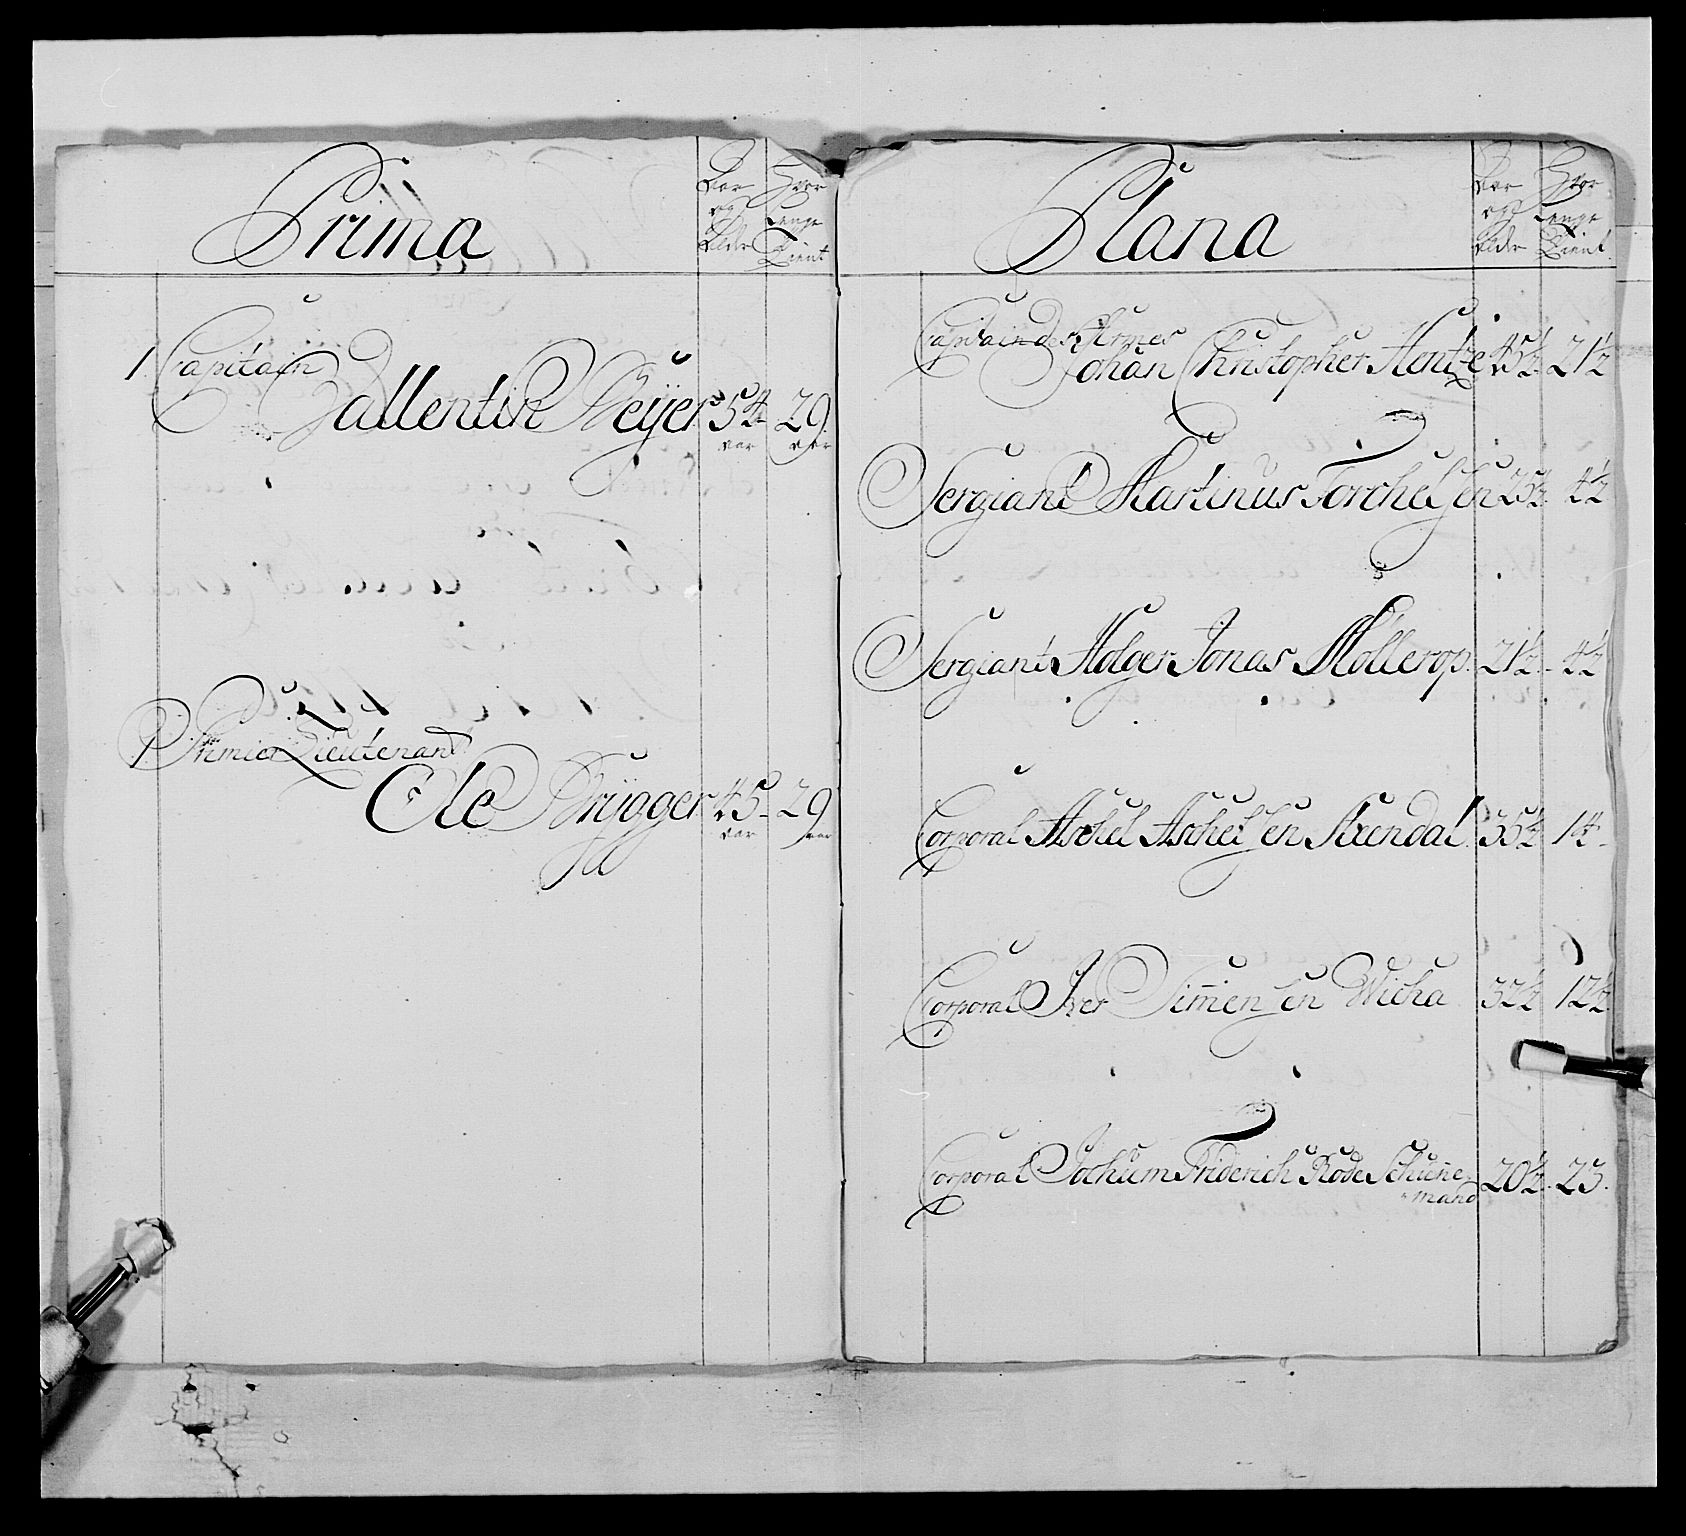 Prima
Aar og Alder
Hvor Lenge Tient
1. Capitain
Vallentin Meÿer 54 29
aar aar
1 Premier Lieutenant
Ole Brÿgger 45 29
aar aar
Plana
Aar og Alder
Hvor Lenge Tient
Capitain des Armes
Johan Christopher Hentze 45½ 21½
Sergiant Martinus Torchelsen 25½ 4½
Sergiant Holger Jonas Möllerop 21½ 4½
Corporal Aschel Aschelsen 35½ 14
Corporal Iver Simensen Wicha 32½ 12½
Corporal Jochum Friderich Rode Schüene
mand 20½ 23